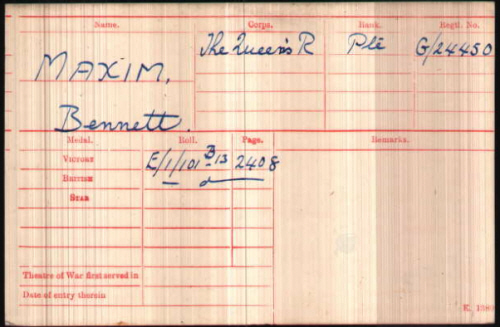 Name. Corps. Rank. Regtl. No.
MAXIM, The Queen's R Pte G/24450
Bennett.
Medal. Roll. Page. Remarks.
VICTORY E/1/101 B13 2408
BRITISH
STAR
Theatre of War first served in
Date of entry therein